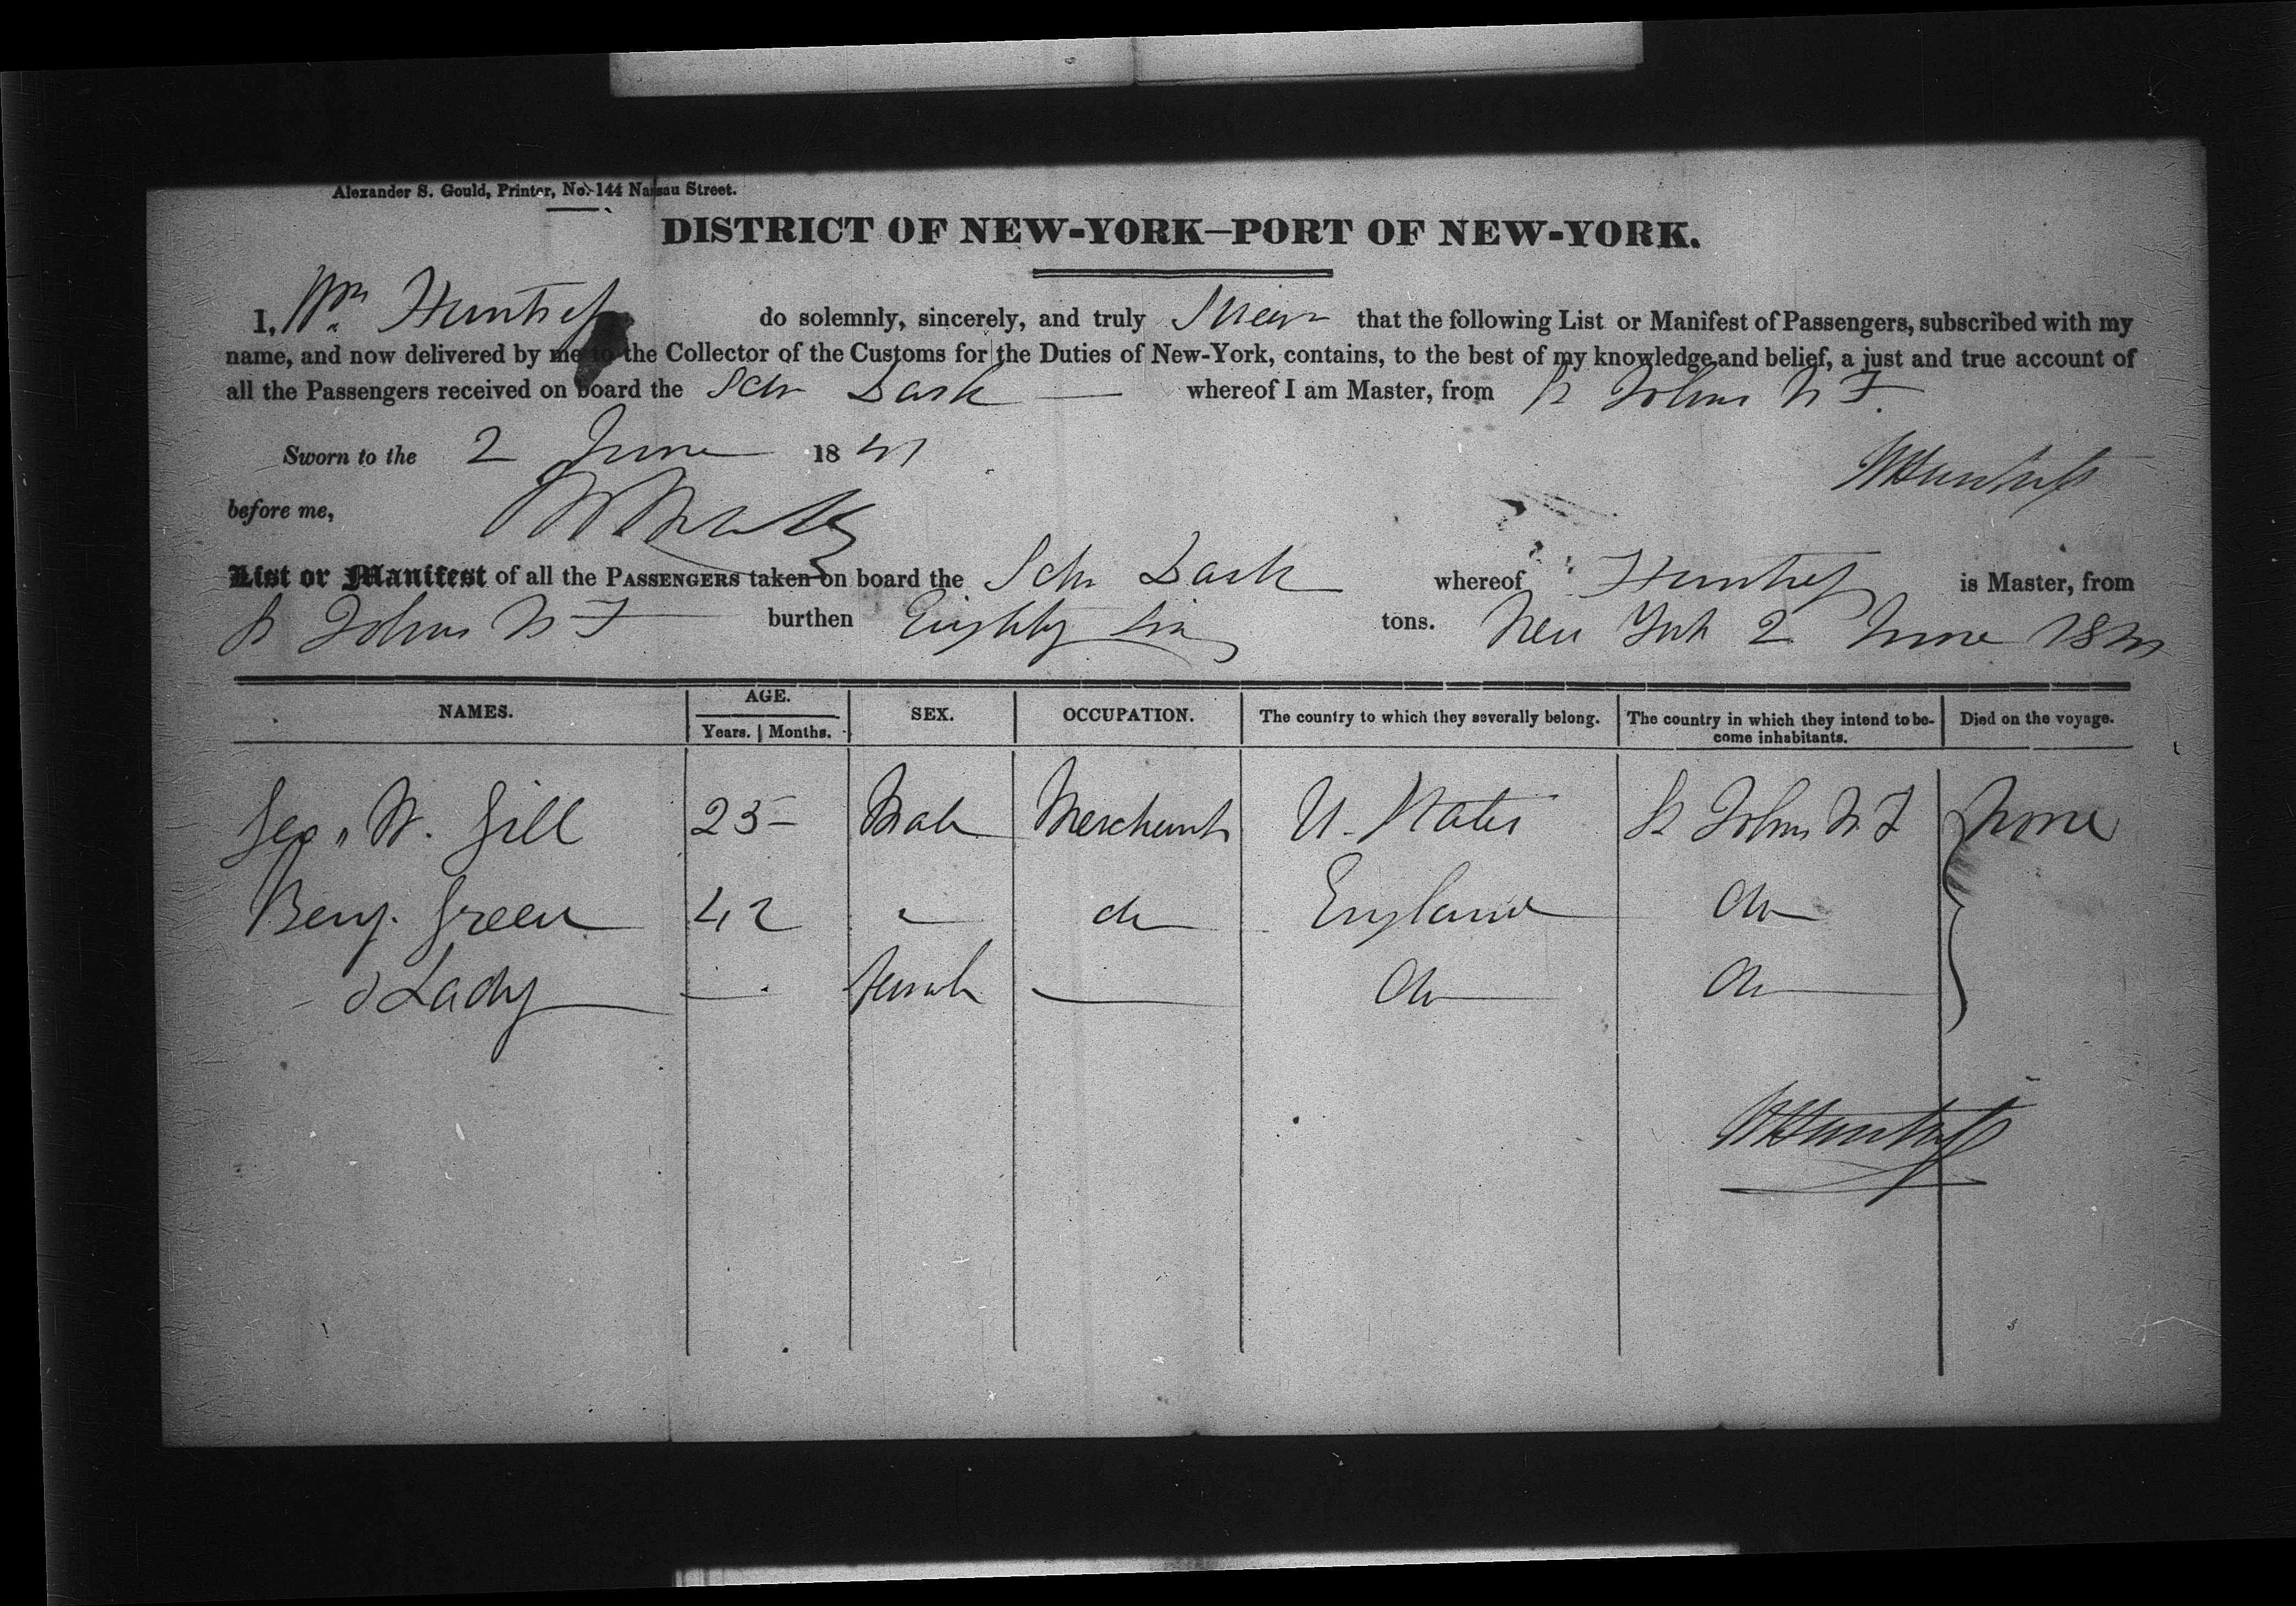 Alexander S. Gould, Printer, No. 144 Nassau Street.
DISTRICT OF NEW-YORK—PORT OF NEW-YORK.
I, Wm Huntress do solemnly, sincerely, and truly Swear that the following List or Manifest of Passengers, subscribed with my
name, and now delivered by me to the Collector of the Customs for the Duties of New-York, contains, to the best of my knowledge and belief, a just and true account of
all the Passengers received on board the Schr Dask whereof I am Master, from St Johns N F.
Sworn to the 2 June 1841
before me,
List or Manifest of all the PASSENGERS taken on board the Schr Dask whereof Huntress is Master, from
St Johns N F burthen Eighty Six tons. New York 2 June 1841
NAMES. AGE. Years. Months. SEX. OCCUPATION. The country to which they severally belong. The country in which they intend to become inhabitants. Died on the voyage.
Geo " W. Gill 25 Male Merchant U. States St Johns N F None
Benj. Green 42 " do England do
& Lady — female — do do